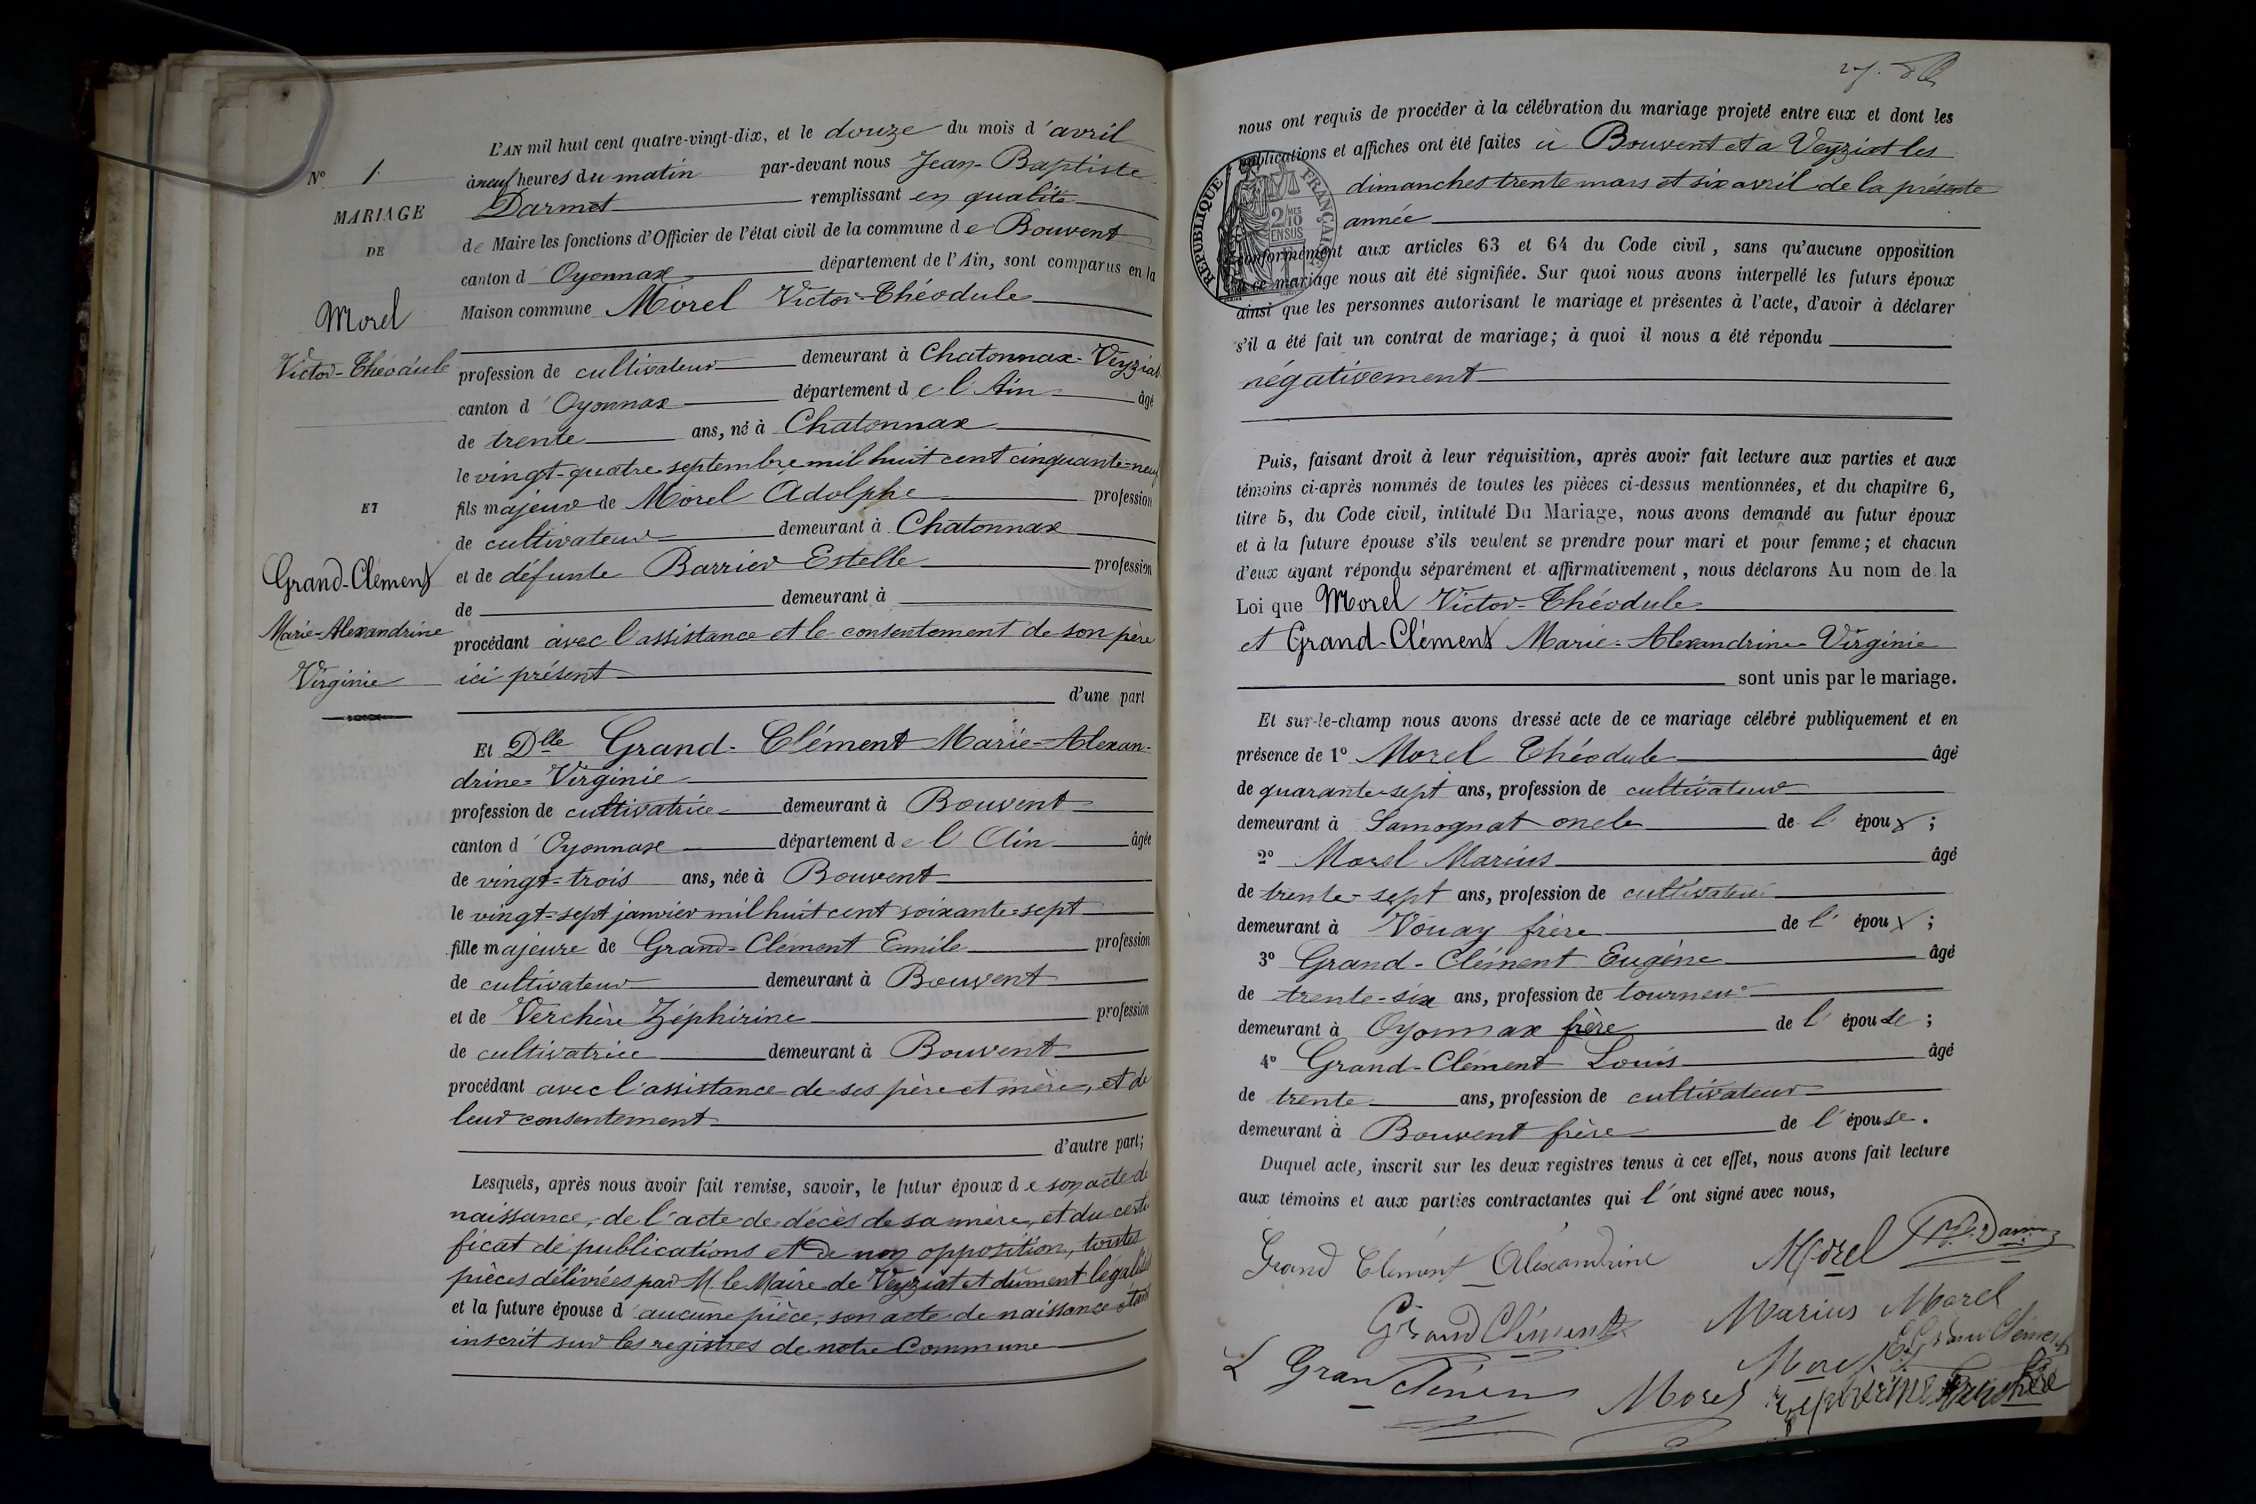 N° 1
MARIAGE
DE
Morel
Victor-Théodule
ET
Grand-Clément
Marie-Alexandrine
Virginie
L'AN mil huit cent quatre-vingt-dix, et le douze du mois d'avril
à neuf heures du matin par-devant nous Jean-Baptiste
Darmet remplissant en qualité
de Maire les fonctions d'Officier de l'état civil de la commune de Bouvent
canton d'Oyonnax département de l'Ain, sont comparus en la
Maison commune Morel Victor-Théodule
profession de cultivateur demeurant à Chatonnax-Veyziat
canton d'Oyonnax département de l'Ain âgé
de trente ans, né à Chatonnax
le vingt-quatre septembre mil huit cent cinquante-neuf
fils majeur de Morel Adolphe profession
de cultivateur demeurant à Chatonnax
et de défunte Barrier Estelle profession
de demeurant à
procédant avec l'assistance et le consentement de son père
ici présent
d'une part
Et Dlle Grand-Clément Marie-Alexan-
drine-Virginie
profession de cultivatrice demeurant à Bouvent
canton d'Oyonnax département de l'Ain âgée
de vingt-trois ans, née à Bouvent
le vingt-sept janvier mil huit cent soixante-sept
fille majeure de Grand-Clément Emile profession
de cultivateur demeurant à Bouvent
et de Verchère Zéphirine profession
de cultivatrice demeurant à Bouvent
procédant avec l'assistance de ses père et mère, et de
leur consentement
d'autre part;
Lesquels, après nous avoir fait remise, savoir, le futur époux de son acte de
naissance, de l'acte de décès de sa mère, et du certi
ficat de publications et de non opposition, toutes
pièces délivrées par M. le Maire de Veyziat et dûment légalisées
et la future épouse d'aucune pièce, son acte de naissance étant
inscrit sur les registres de notre Commune
nous ont requis de procéder à la célébration du mariage projeté entre eux et dont les
publications et affiches ont été faites à Bouvent et à Veyziat les
dimanches trente mars et six avril de la présente
année
RÉPUBLIQUE FRANÇAISE
2/10 EN SUS
conformément aux articles 63 et 64 du Code civil, sans qu'aucune opposition
à ce mariage nous ait été signifiée. Sur quoi nous avons interpellé les futurs époux
ainsi que les personnes autorisant le mariage et présentes à l'acte, d'avoir à déclarer
s'il a été fait un contrat de mariage; à quoi il nous a été répondu
négativement
Puis, faisant droit à leur réquisition, après avoir fait lecture aux parties et aux
témoins ci-après nommés de toutes les pièces ci-dessus mentionnées, et du chapitre 6,
titre 5, du Code civil, intitulé Du Mariage, nous avons demandé au futur époux
et à la future épouse s'ils veulent se prendre pour mari et pour femme; et chacun
d'eux ayant répondu séparément et affirmativement, nous déclarons Au nom de la
Loi que Morel Victor-Théodule
et Grand-Clément Marie-Alexandrine-Virginie
sont unis par le mariage.
Et sur-le-champ nous avons dressé acte de ce mariage célébré publiquement et en
présence de 1° Morel Théodule âgé
de quarante-sept ans, profession de cultivateur
demeurant à Samognat oncle de l'époux;
2° Morel Marius âgé
de trente-sept ans, profession de cultivateur
demeurant à Vouay frère de l'époux;
3° Grand-Clément Eugène âgé
de trente-six ans, profession de tourneur
demeurant à Oyonnax frère de l'épouse;
4° Grand-Clément Louis âgé
de trente ans, profession de cultivateur
demeurant à Bouvent frère de l'épouse.
Duquel acte, inscrit sur les deux registres tenus à cet effet, nous avons fait lecture
aux témoins et aux parties contractantes qui l'ont signé avec nous,
Grand Clément Alexandrine Morel
Grand Clément Marius Morel
L Gran Clémen Morel